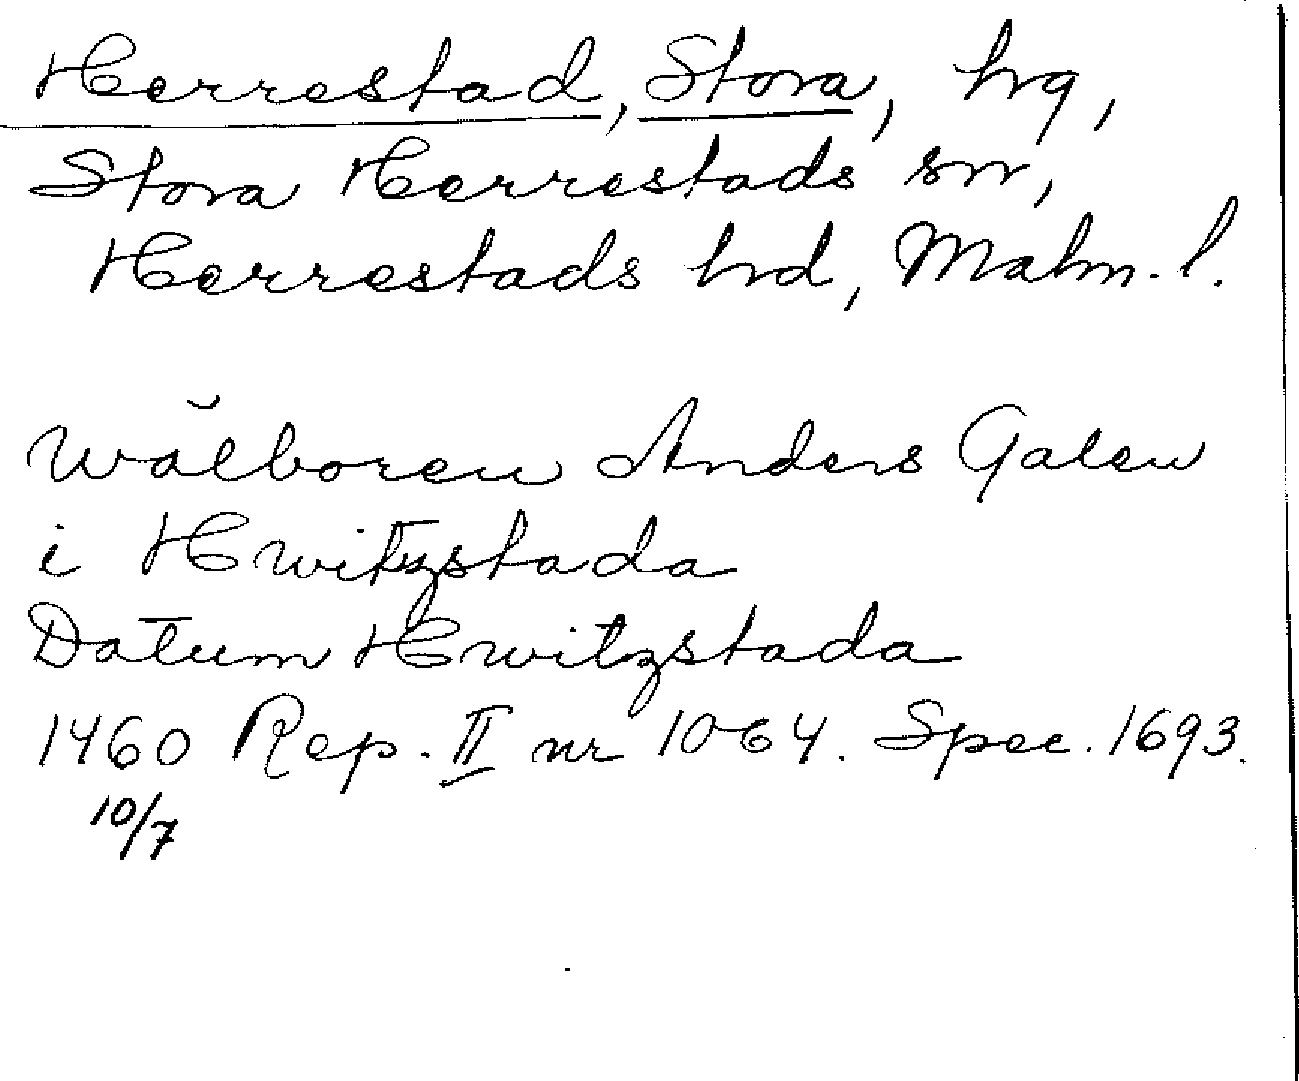 Herrestad, Stora, hg,
Stora Herrestads sn,
Herrestads hd, Malm. l.
Wälboren Anders Galen
i Hwitzstada
Datum Hwitzstada
1460 Rep. II nr 1064. Spec. 1693.
10/7